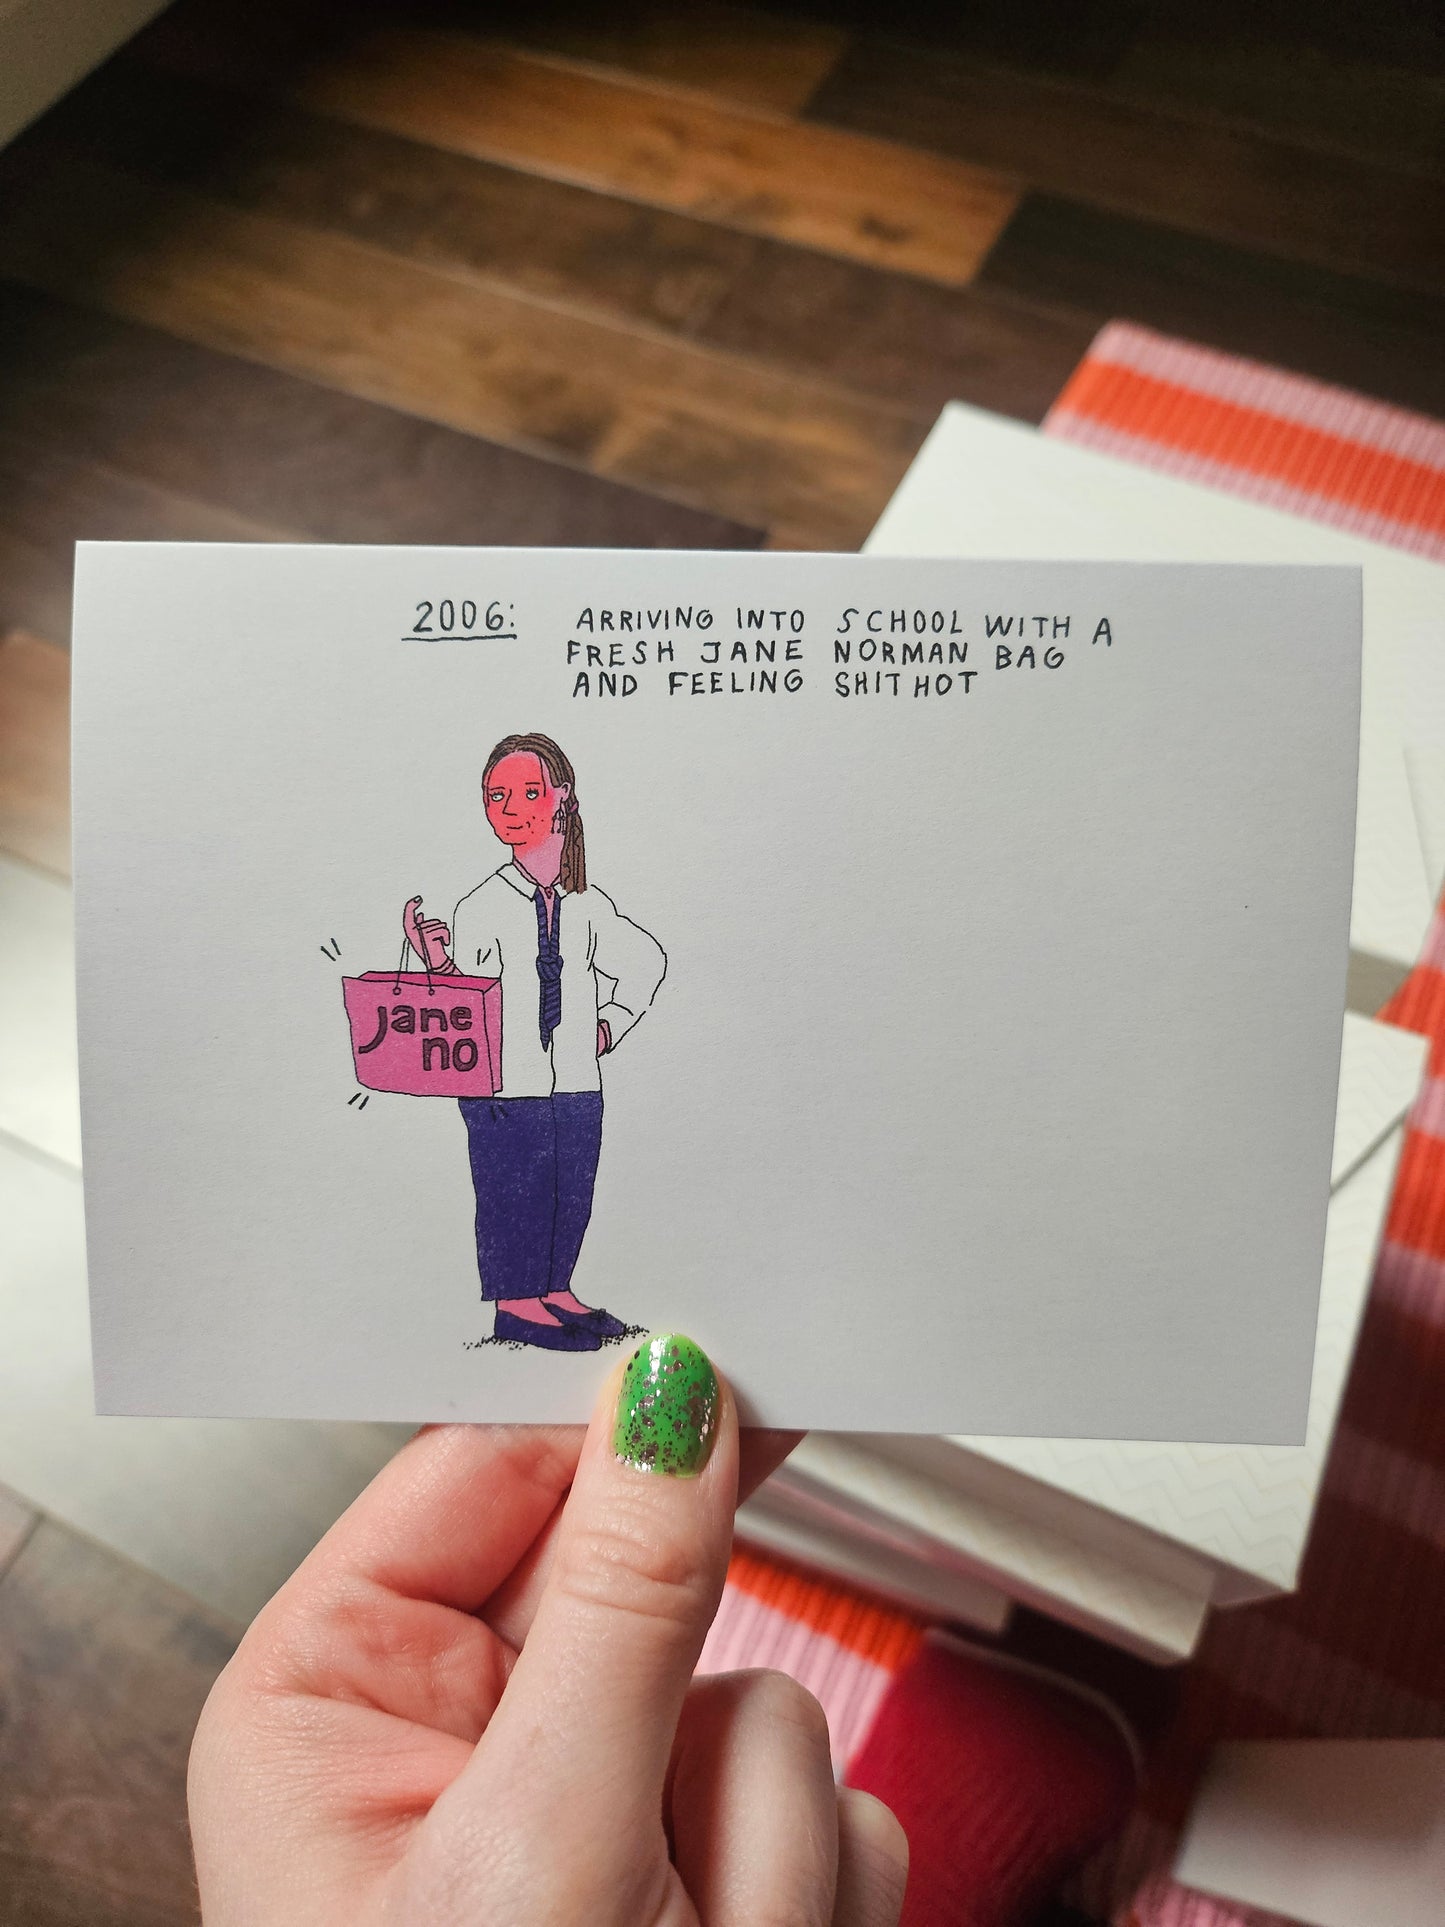 2006: ARRIVING INTO SCHOOL WITH A
FRESH JANE NORMAN BAG
AND FEELING SHIT HOT
jane
no